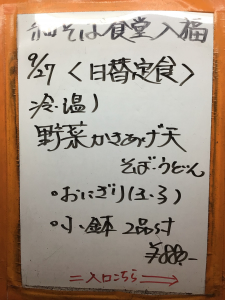 そば食堂入福
9/27 〈日替定食〉
冷・温)
野菜かきあげ天
そば・うどん
・おにぎり(3.3)
・小鉢 2品付
¥880-
入口こちら→